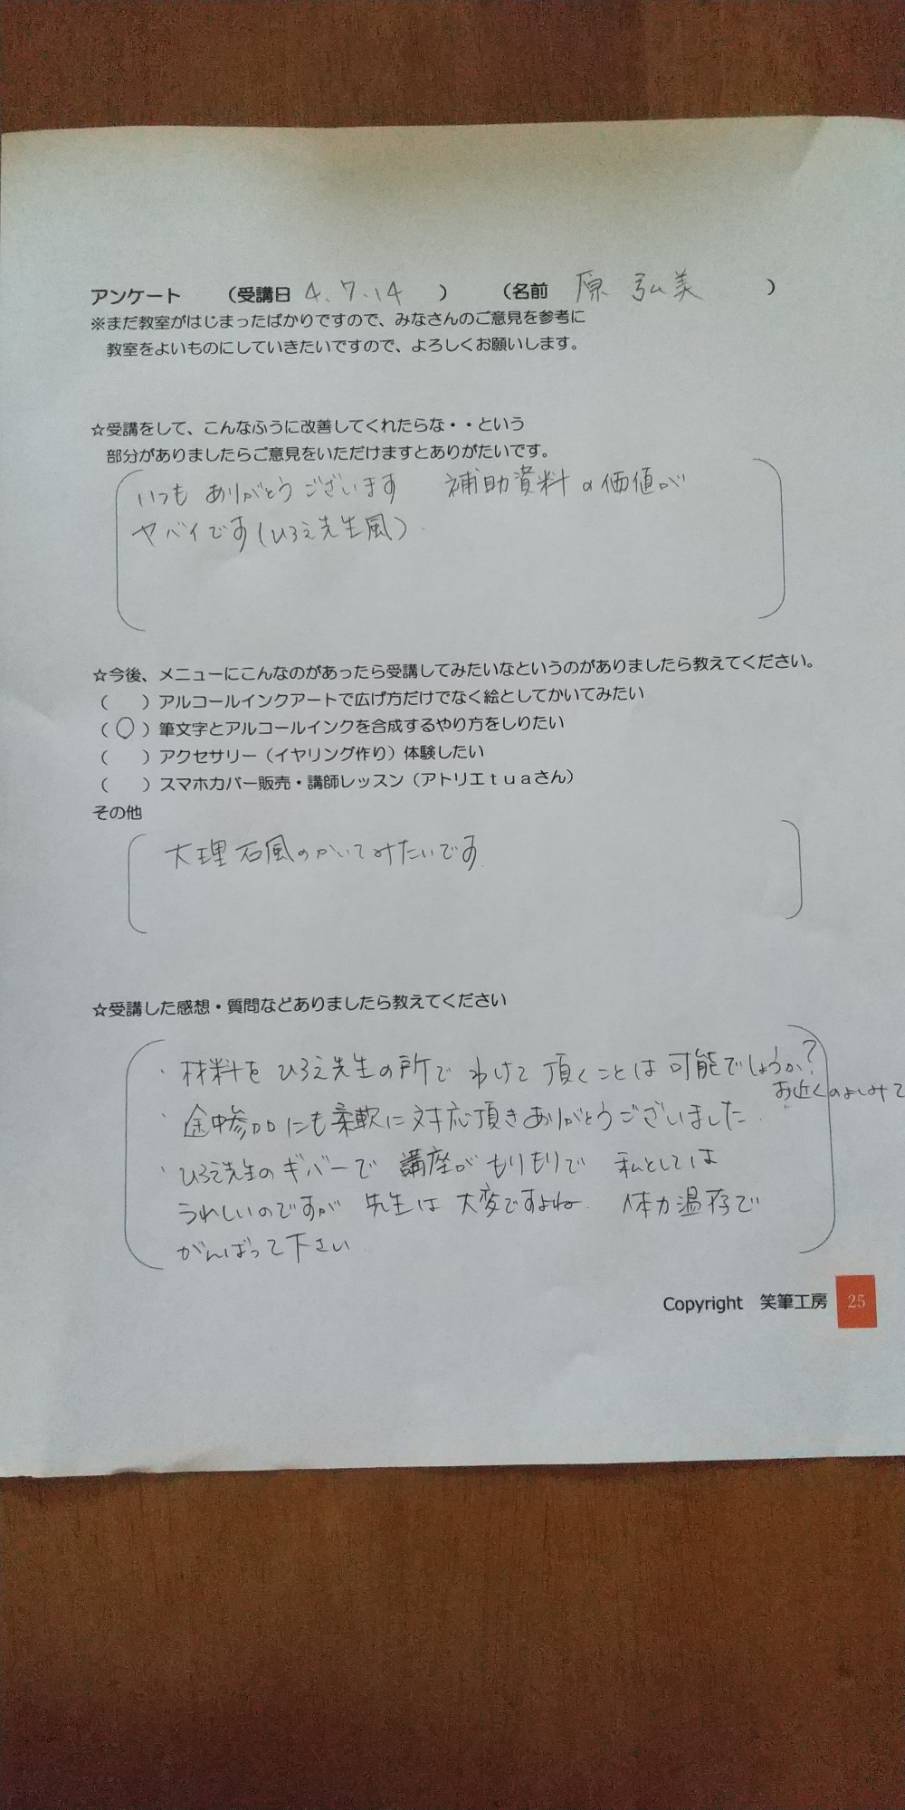 アンケート （受講日 4.7.14 ） （名前 原 弘美 ）
※まだ教室がはじまったばかりですので、みなさんのご意見を参考に
教室をよいものにしていきたいですので、よろしくお願いします。
☆受講をして、こんなふうに改善してくれたらな・・という
部分がありましたらご意見をいただけますとありがたいです。
いつも ありがとうございます 補助資料の価値が
ヤバイです(ひろえ先生風)
☆今後、メニューにこんなのがあったら受講してみたいなというのがありましたら教えてください。
（ ）アルコールインクアートで広げ方だけでなく絵としてかいてみたい
（○）筆文字とアルコールインクを合成するやり方をしりたい
（ ）アクセサリー（イヤリング作り）体験したい
（ ）スマホカバー販売・講師レッスン（アトリエｔｕａさん）
その他
大理石風のかいてみたいです
☆受講した感想・質問などありましたら教えてください
・材料を ひろえ先生の所で わけて 頂くことは 可能でしょうか?
お近くのよしみで
・途中参加にも柔軟に対応頂きありがとうございました.
・ひろえ先生のギバーで 講座が もりもりで 私としては
うれしいのですが 先生は 大変ですよね. 体力温存で
がんばって下さい
Copyright 笑筆工房 25